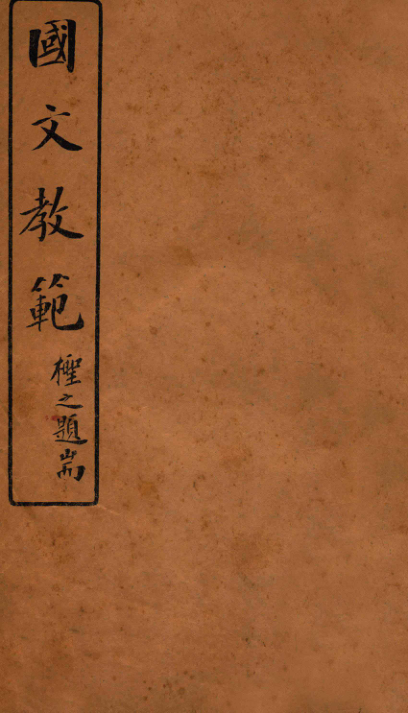 國文教範
檉之題耑